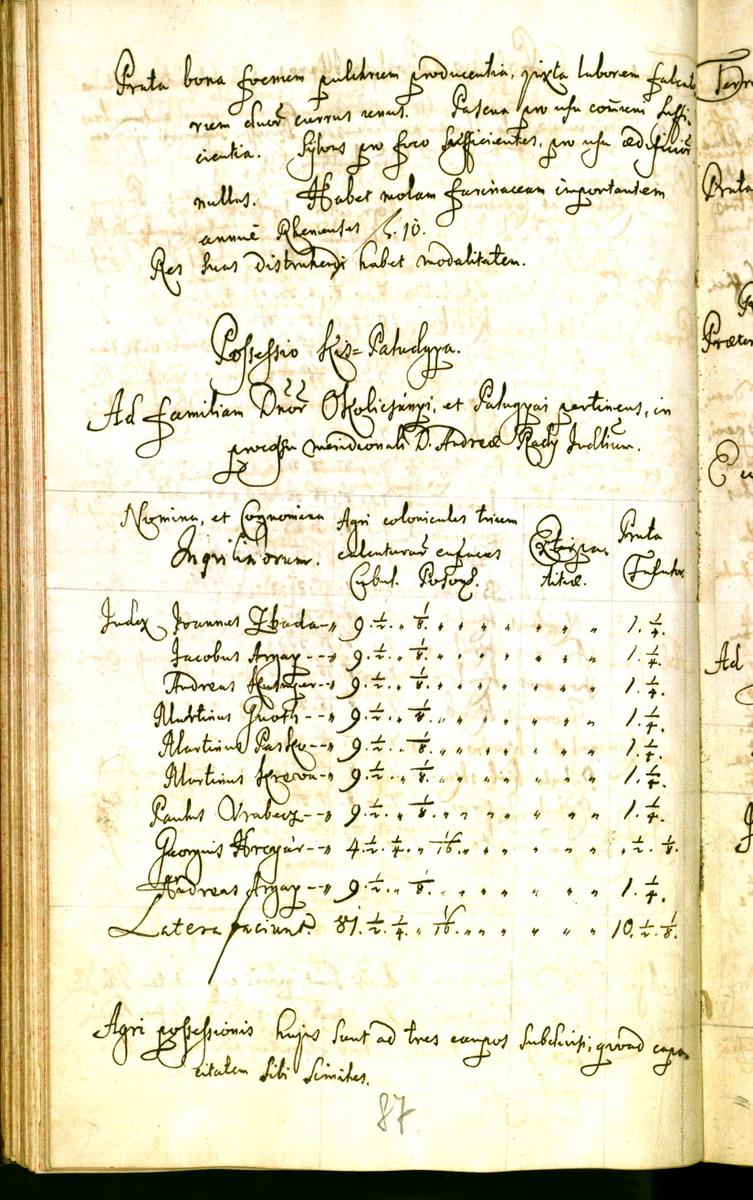 Prata bona foenum pulchrum producentia, juxta laborem falcato
rum duor currus unus. Pascua pro usu com̄uni suffi-
cientia. Sylvas pro foco sufficientes, pro usu ædificior
nullas. Habet molam farinaceam importantem
annuè Rhenenses f. 10.
Res suas distrahendi habet modalitatem.
Possessio Kis=Paludgya.
Ad familiam Dnor Okolicsányi, et Palugyai pertinens, in
processu meridionali D. Andreæ Rady Judlium.
Nomina, et Cognomina Agri colonicales trium Extirpa- Prata
Inquilinorum. calcaturar capaces titiæ. Falcator
Cubul. Poson.
Judex Joannes Zbada 9. 1/2. „ 1/8. „ „ „ „ „ „ „ 1. 1/4.
Jacobus 9. 1/2. „ 1/8. „ „ „ „ „ „ „ 1. 1/4.
Andreas 9. 1/2. „ 1/8. „ „ „ „ „ „ „ 1. 1/4.
Martinus Guoth 9. 1/2. „ 1/8. „ „ „ „ „ „ „ 1. 1/4.
Martinus Pasko 9. 1/2. „ 1/8. „ „ „ „ „ „ „ 1. 1/4.
Martinus Kreva 9. 1/2. „ 1/8. „ „ „ „ „ „ „ 1. 1/4.
Paulus Vrabecz 9. 1/2. „ 1/8. „ „ „ „ „ „ „ 1. 1/4.
Georgius 4. 1/2. 1/4. „ 1/16. „ „ „ „ „ „ „ 1/2. 1/8.
Andreas 9. 1/2. „ 1/8. „ „ „ „ „ „ „ 1. 1/4.
Latera faciunt. 81. 1/2. 1/4. „ 1/16. „ „ „ „ „ „ 10. 1/2. 1/8.
Agri possessionis hujus sunt ad tres campos subdivisi, quoad capa-
citatem sibi similes.
87